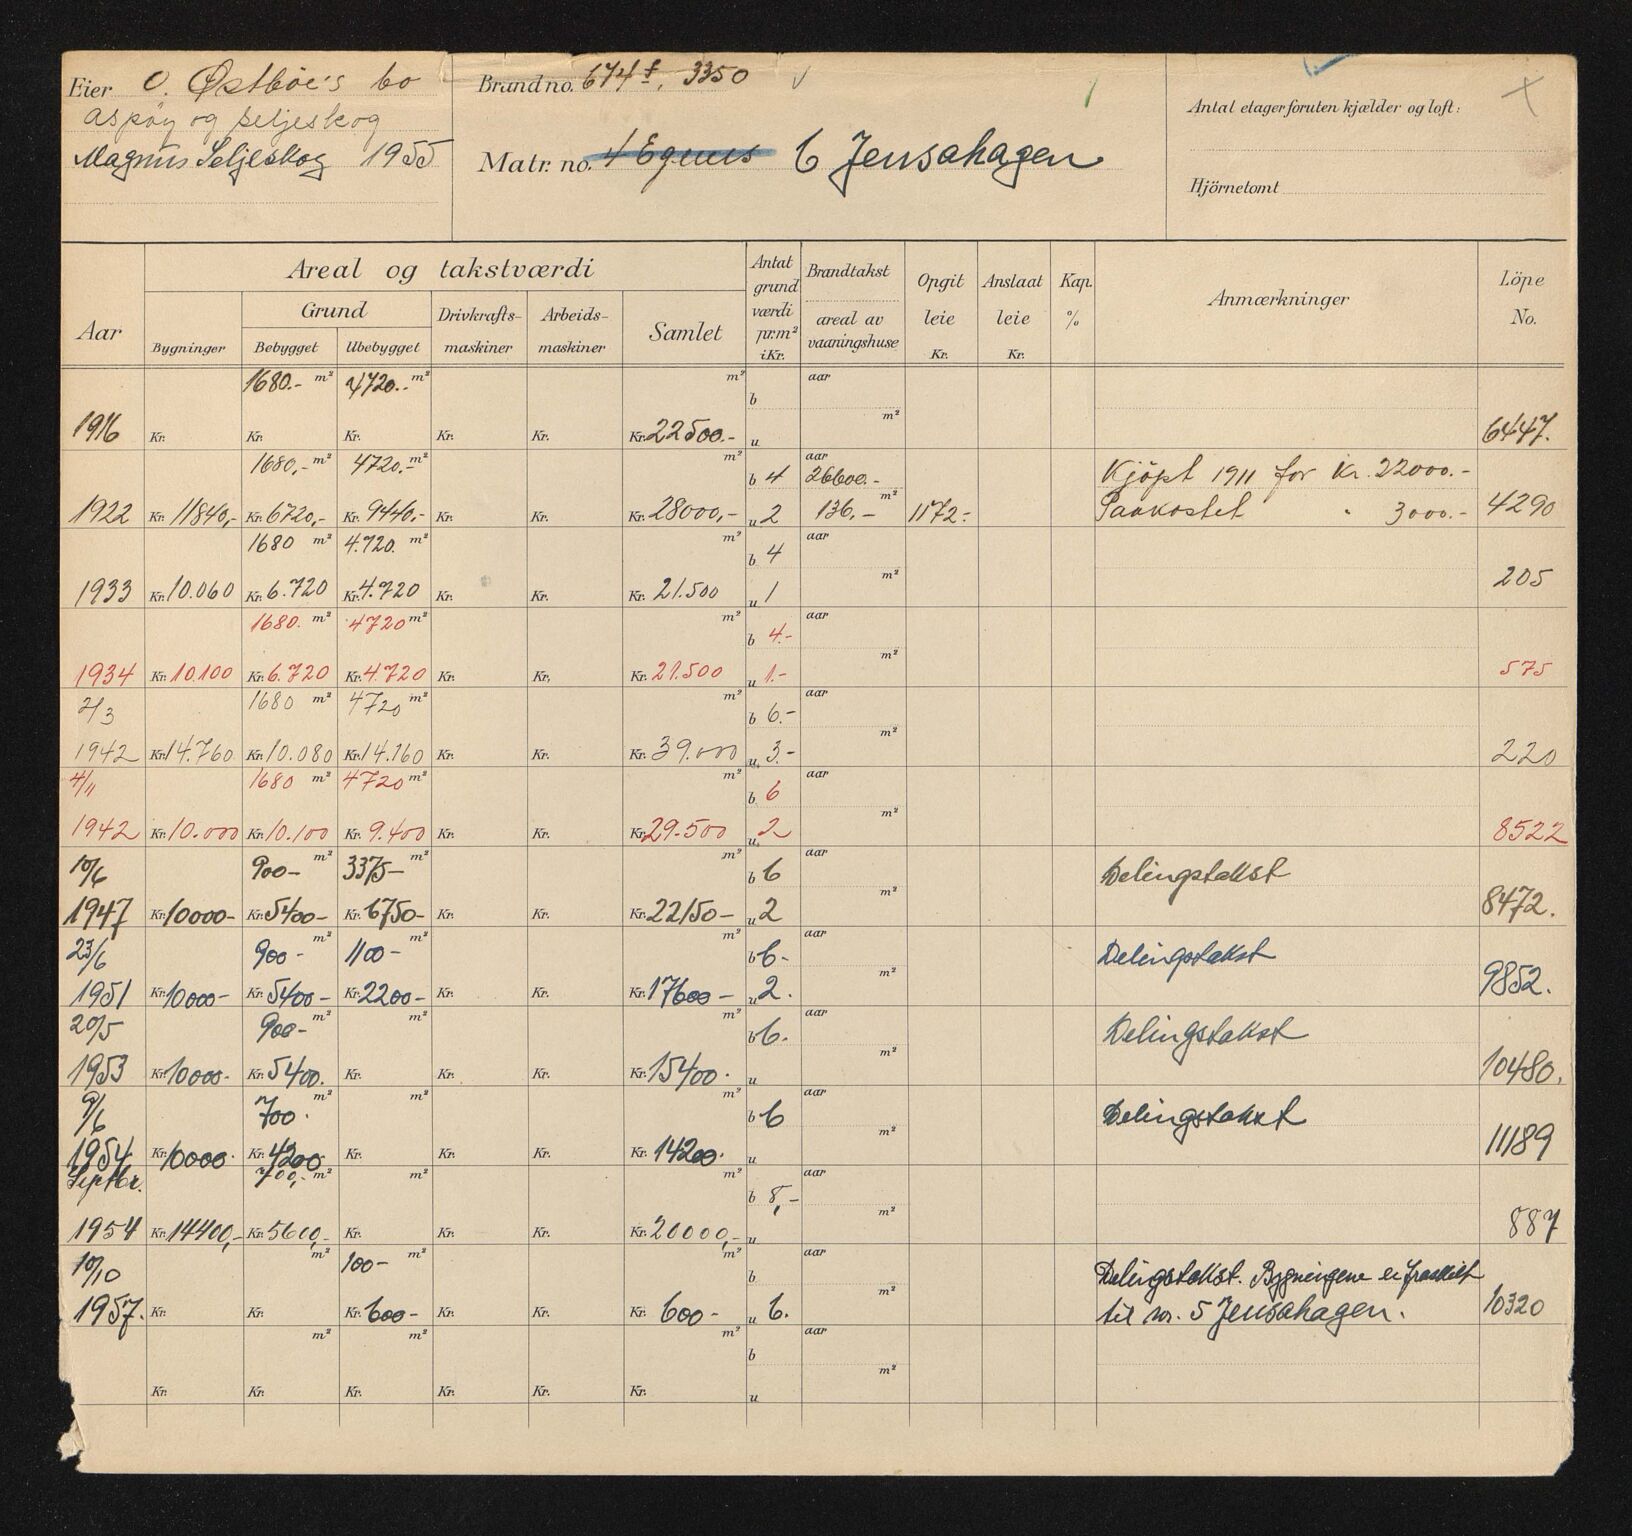 Eier O. Østbøe's bo
Aspøy og Seljeskog
Magnus Seljeskog 1955
Brand no. 674 f, 3350
Matr. no. 4 Egenes 6 Jensahagen
Antal etager foruten kjælder og loft:
Hjörnetomt
Areal og takstværdi
Aar
Bygninger
Grund
Bebygget
Ubebygget
Drivkrafts-maskiner
Arbeids-maskiner
Samlet
Antat grund værdi pr.m² i Kr.
Brandtakst
areal av vaaningshuse
Opgit leie Kr.
Anslaat leie Kr.
Kap. %
Anmærkninger
Löpe No.
1680.- m² 4720.- m² m² b aar
1916 Kr. Kr. Kr. Kr. Kr. Kr. 22500.- u m² 6447.
1680,- m² 4720.- m² m² b 4 aar 26600.- Kjöpt 1911 for Kr. 22000.-
1922 Kr. 11840,- Kr. 6720,- Kr. 9440,- Kr. Kr. Kr. 28000,- u 2 136,- m² 1172.- Paakostet " 3000.- 4290
1680 m² 4.720. m² m² b 4 aar
1933 Kr. 10.060 Kr. 6.720 Kr. 4.720 Kr. Kr. Kr. 21.500 u 1 m² 205
1680. m² 4720 m² m² b 4.- aar
1934 Kr. 10.100 Kr. 6.720 Kr. 4.720 Kr. Kr. Kr. 21.500 u 1.- m² 575
2/3 1680 m² 4720 m² m² b 6.- aar
1942 Kr. 14.760 Kr. 10.080 Kr. 14.160 Kr. Kr. Kr. 39.000 u 3.- m² 220
4/11 1680 m² 4720 m² m² b 6 aar
1942 Kr. 10.000 Kr. 10.100 Kr. 9.400 Kr. Kr. Kr. 29.500 u 2 m² 8522
10/6 900- m² 3375- m² m² b 6 aar Delingstakst
1947 Kr. 10000- Kr. 5400- Kr. 6750- Kr. Kr. Kr. 22150- u 2 m² 8472.
23/6 900- m² 1100- m² m² b 6- aar Delingstakst
1951 Kr. 10000- Kr. 5400- Kr. 2200- Kr. Kr. Kr. 17600- u 2. m² 9852.
20/5 900- m² m² m² b 6. aar Delingstakst
1953 Kr. 10000- Kr. 5400. Kr. Kr. Kr. Kr. 15400. u m² 10480.
9/6 700. m² m² m² b 6 aar Delingstakst
1954 Kr. 10000. Kr. 4200 Kr. Kr. Kr. Kr. 14200. u m² 11189
Septbr. 700,- m² m² m² b 8,- aar
1954 Kr. 14400,- Kr. 5600,- Kr. Kr. Kr. Kr. 20000,- u m² 887
10/10 m² 100- m² m² b aar Delingstakst. Bygningene er fraskilt
1957. Kr. Kr. Kr. 600- Kr. Kr. Kr. 600- u 6. m² til nr. 5 Jensahagen. 10320
m² m² m² b aar
Kr. Kr. Kr. Kr. Kr. Kr. u m²